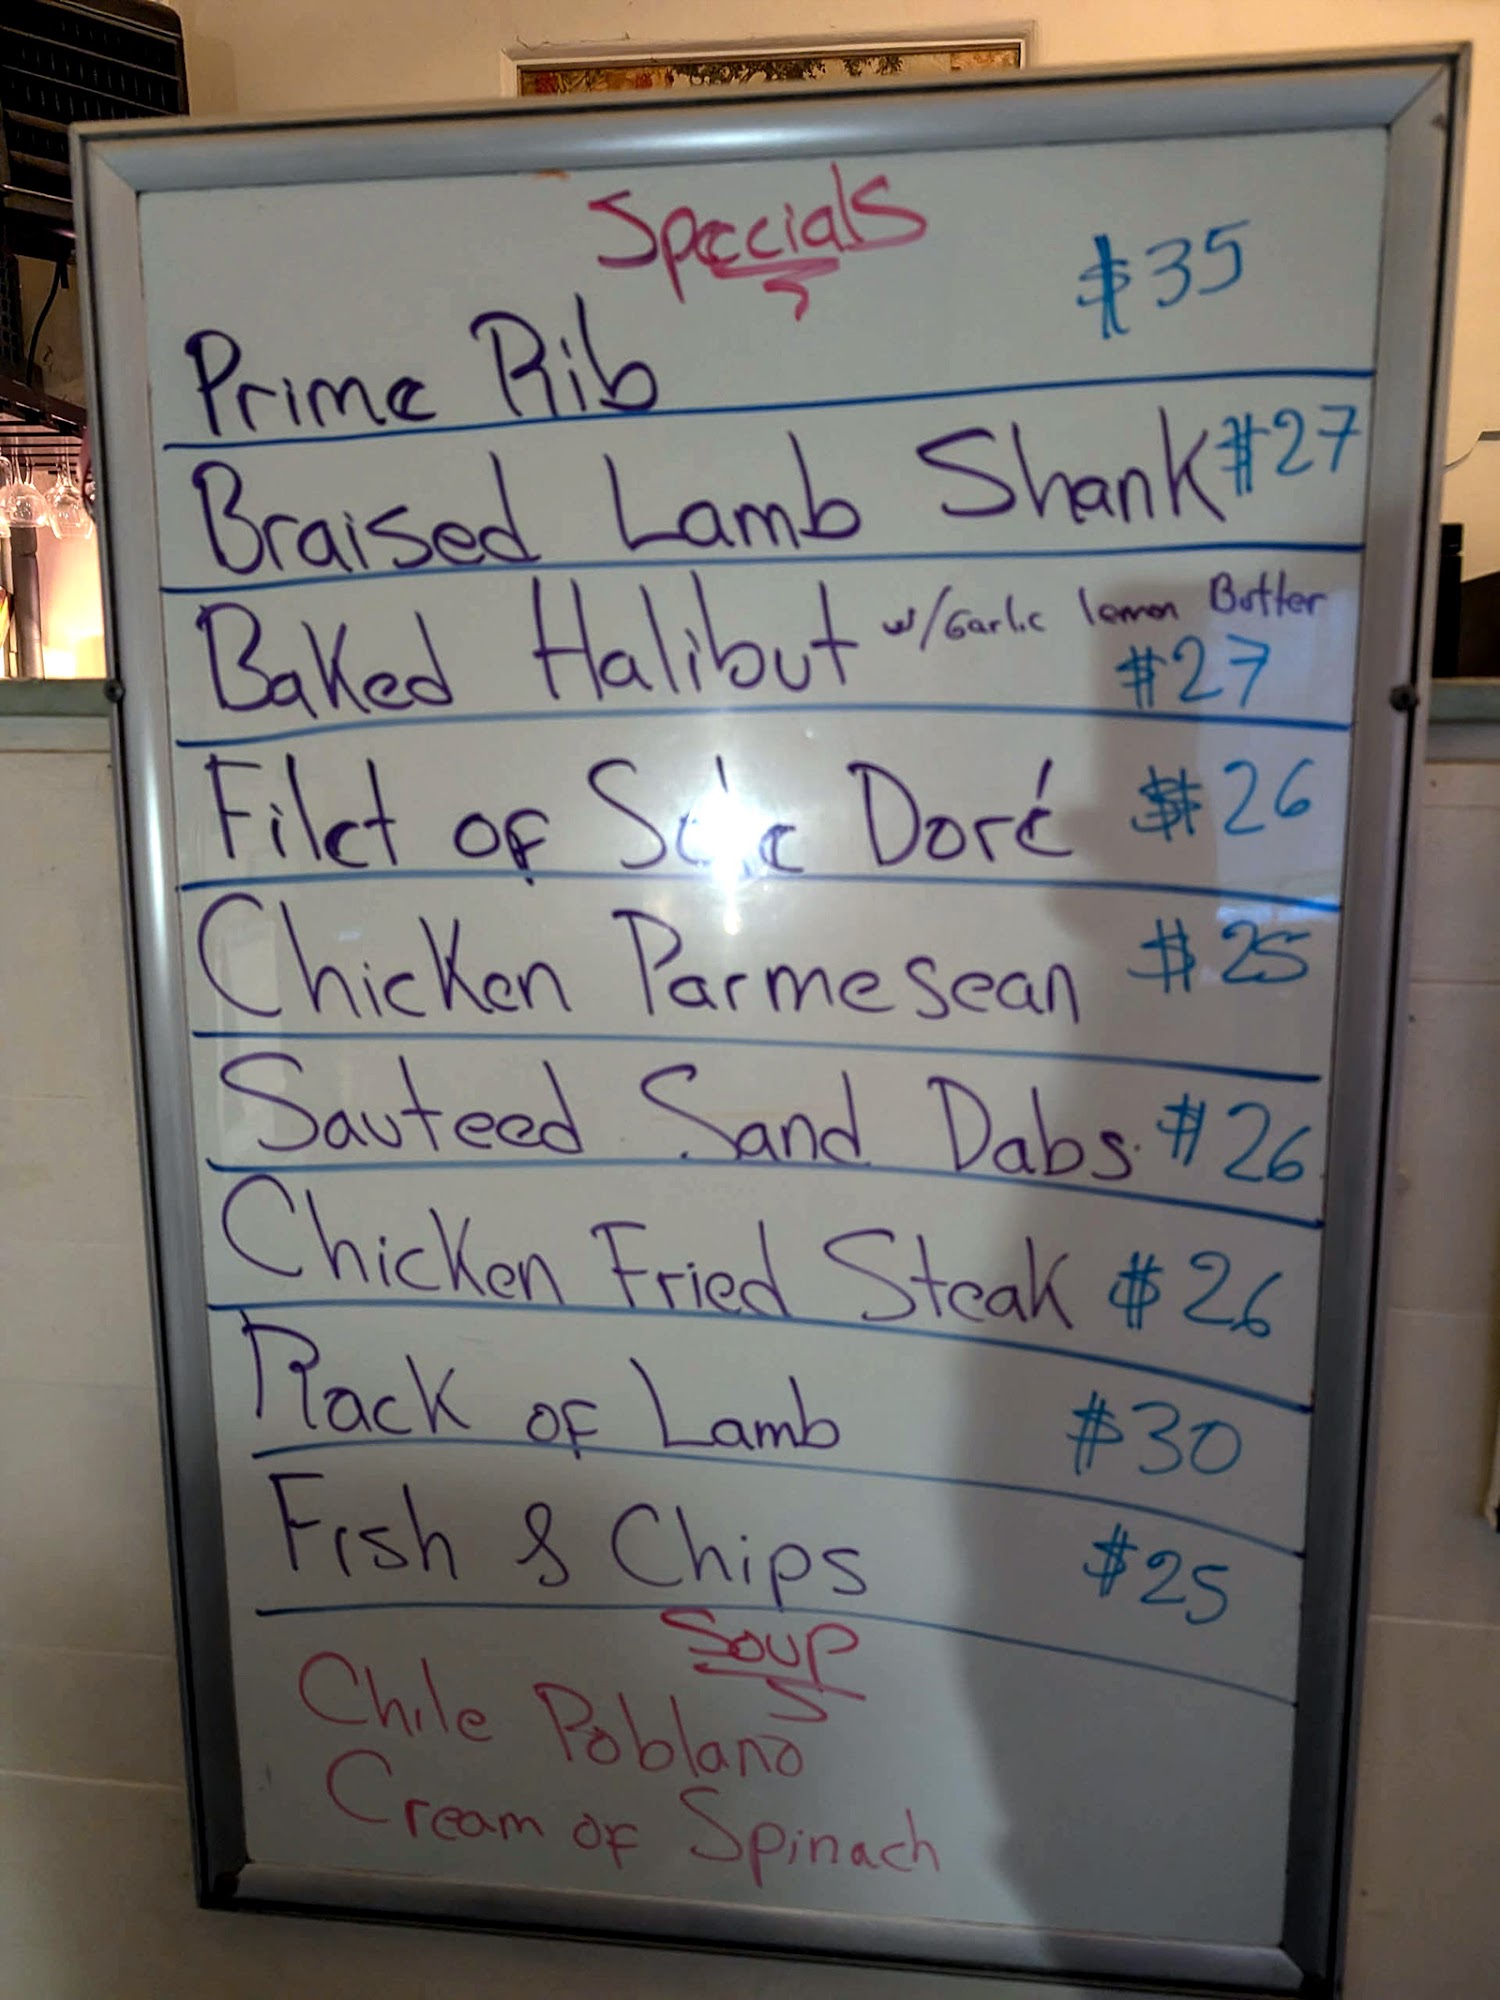 Specials
Prime Rib $35
Braised Lamb Shank $27
Baked Halibut w/Garlic lemon Butter
$27
Filet of Sole Doré $26
Chicken Parmesean $25
Sauteed Sand Dabs $26
Chicken Fried Steak $26
Rack of Lamb $30
Fish & Chips $25
Soup
Chile Poblano
Cream of Spinach